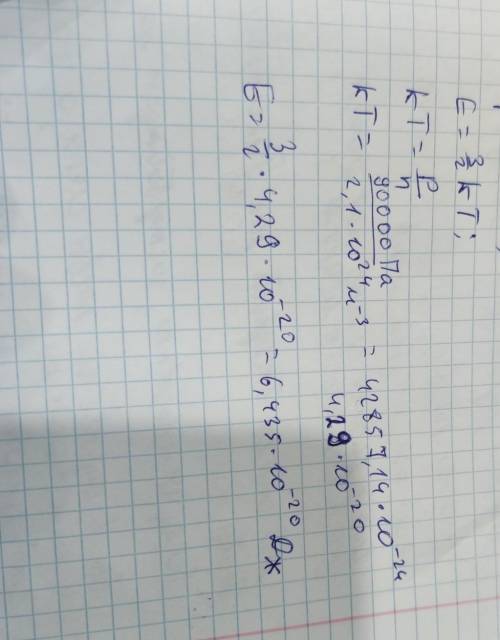 E = 3/2 kT;
kT = P/n
kT = 90000 Па / 2,1 · 10²⁴ м⁻³ = 42857,14 · 10⁻²⁴
4,29 · 10⁻²⁰
E = 3/2 · 4,29 · 10⁻²⁰ = 6,435 · 10⁻²⁰ Дж